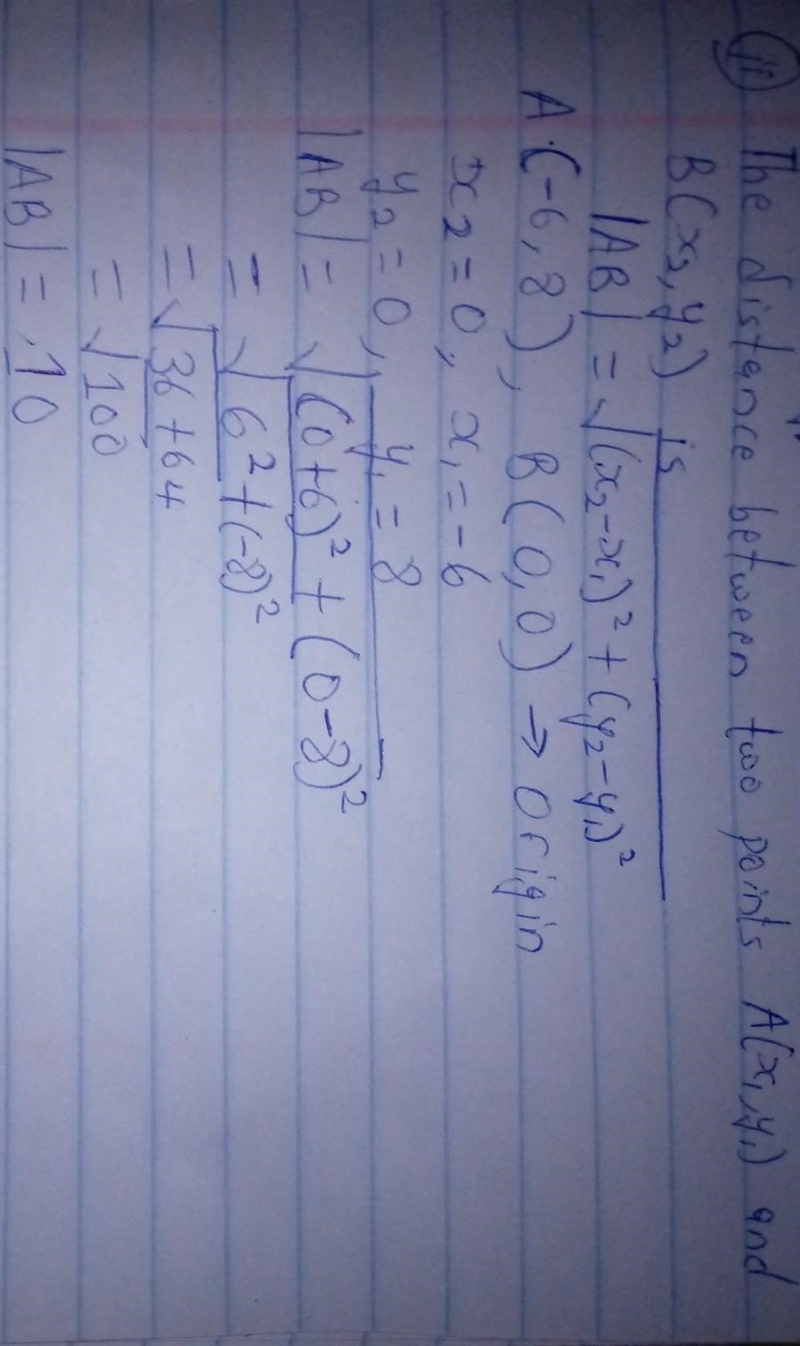 iii The distance between two points A(x₁,y₁) and
B(x₂,y₂) is
|AB| = √(x₂-x₁)² + (y₂-y₁)²
A(-6,8), B(0,0) → Origin
x₂=0, x₁=-6
y₂=0, y₁=8
|AB| = √(0+6)² + (0-8)²
= √6²+(-8)²
= √36+64
= √100
|AB| = 10